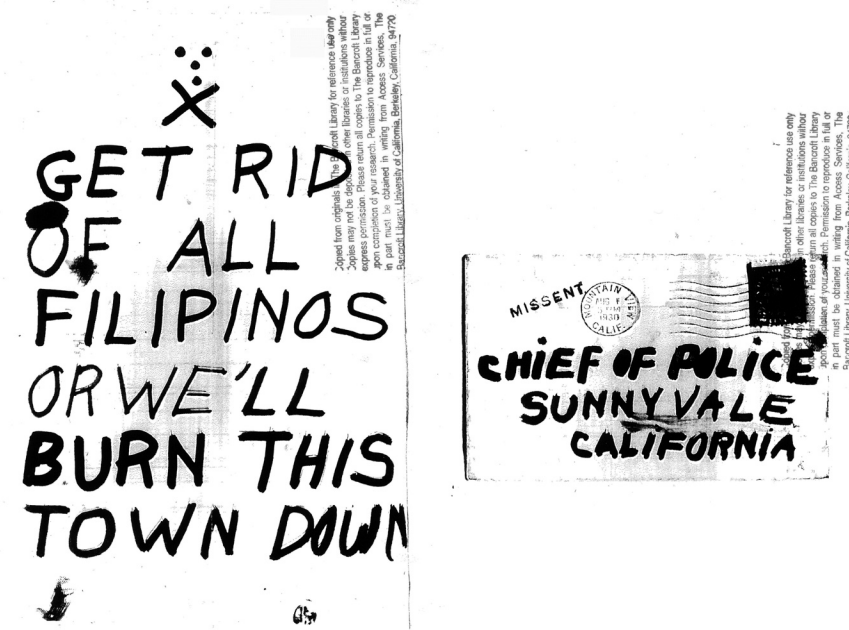 X
GET RID
OF ALL
FILIPINOS
OR WE'LL
BURN THIS
TOWN DOWN
Copied from originals in The Bancroft Library for reference use only
Copies may not be deposited in other libraries or institutions without
express permission. Please return all copies to The Bancroft Library
upon completion of your research. Permission to reproduce in full or
in part must be obtained in writing from Access Services, The
Bancroft Library, University of California, Berkeley, California, 94720
MISSENT
MOUNTAIN VIEW
AUG
1930
CALIF.
CHiEF OF POLiCE
SUNNYVALE
CALIFORNIA
Bancroft Library for reference use only
other libraries or institutions without
return all copies to The Bancroft Library
upon completion of your research. Permission to reproduce in full or
in part must be obtained in writing from Access Services, The
Bancroft Library, University of California, Berkeley, California